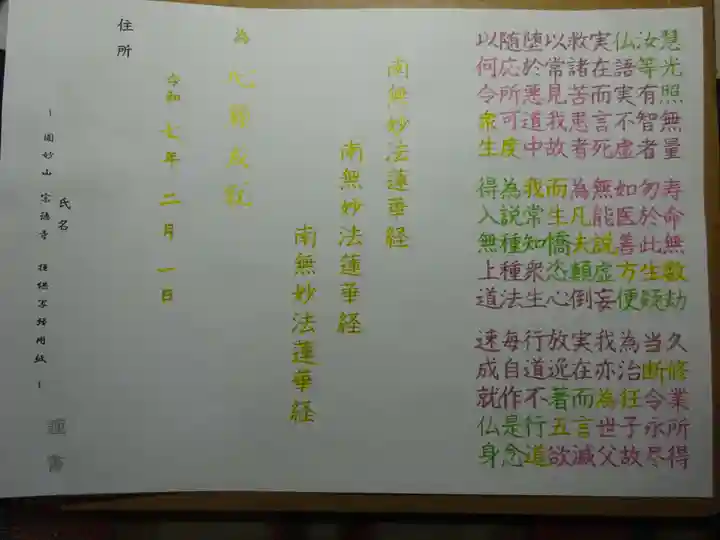 慧光照無量 寿命無数劫 久修業所得
汝等有智者 勿於此生疑 当断令永尽
仏語実不虚 如医善方便 為治狂子故
実在而言死 無能説虚妄 我亦為世父
救諸苦患者 為凡夫顛倒 実在而言滅
以常見我故 而生憍恣心 放逸著五欲
堕於悪道中 我常知衆生 行道不行道
随応所可度 為説種種法 毎自作是念
以何令衆生 得入無上道 速成就仏身
南無妙法蓮華経
南無妙法蓮華経
南無妙法蓮華経
為
令和 七年 二月 一日
住所
氏名
~ 圓妙山 宗 寺 用紙 ~